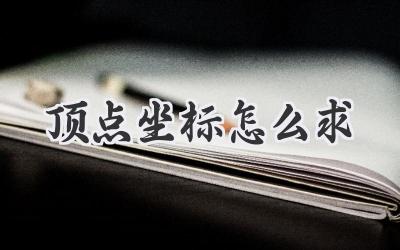 顶点坐标怎么求